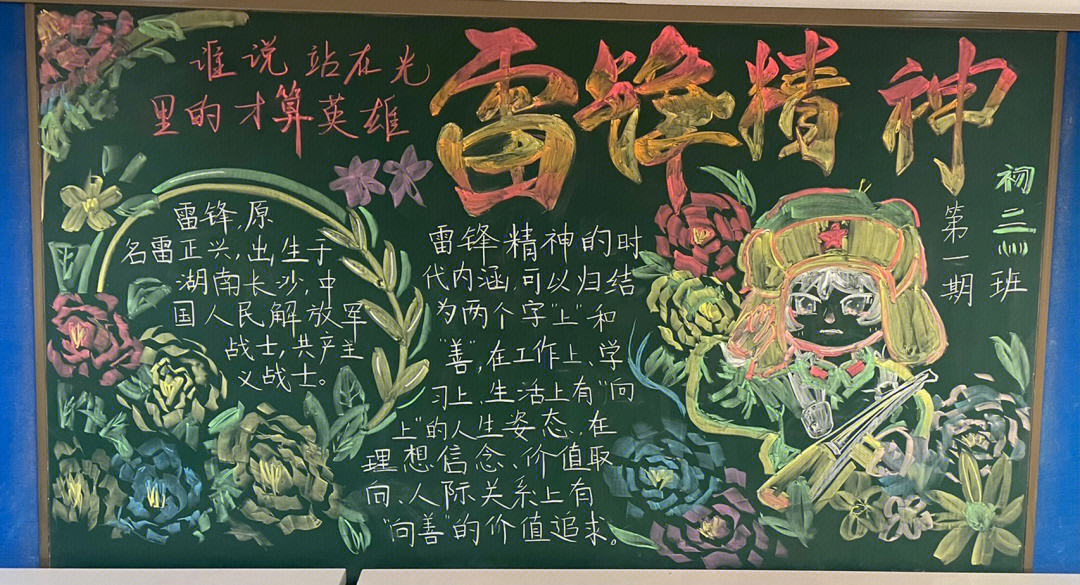 谁说站在光
里的才算英雄
雷锋精神
初二(1)班
第一期
雷锋,原
名雷正兴,出生于
湖南长沙,中
国人民解放军
战士,共产主
义战士。
雷锋精神的时
代内涵,可以归结
为两个字"上"和
"善",在工作上、学
习上、生活上有"向
上"的人生姿态、在
理想信念、价值取
向、人际关系上有
"向善"的价值追求。